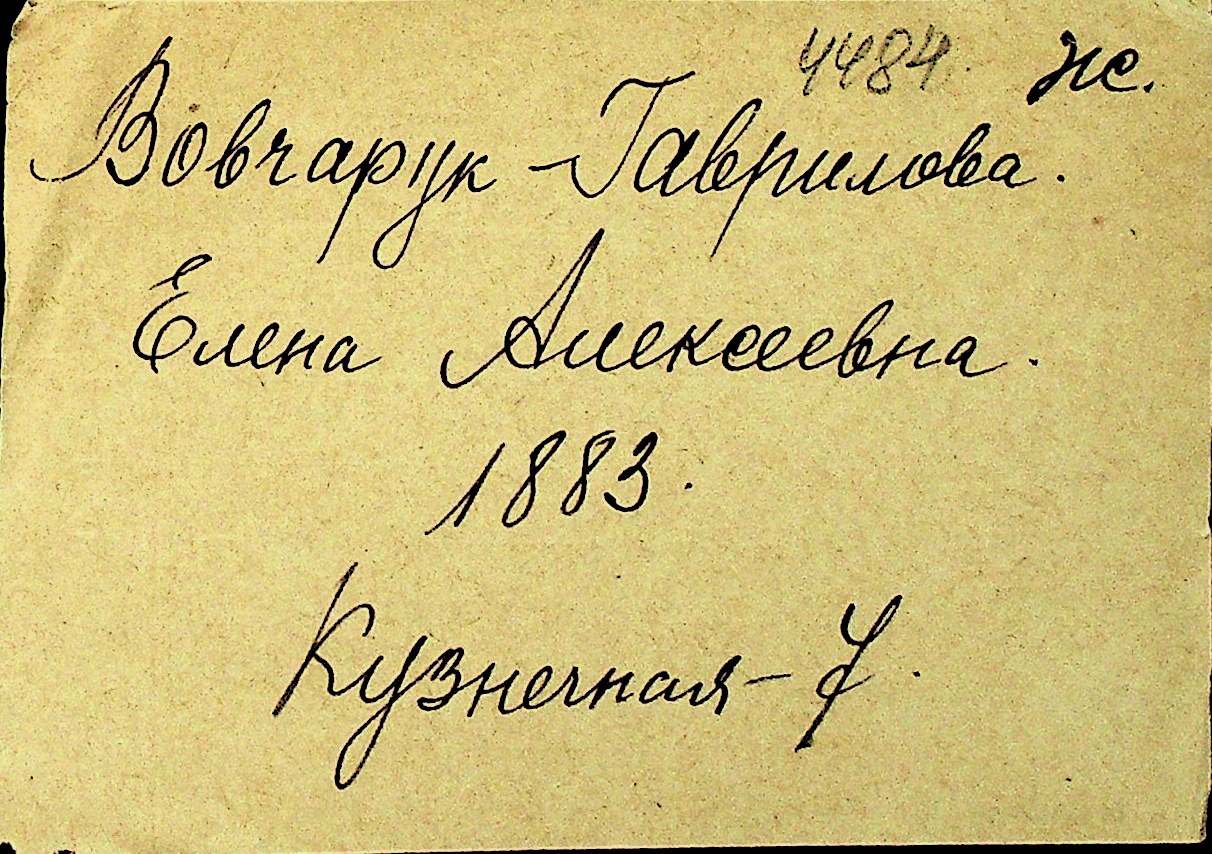 4484. ж.
Вовчарук - Гаврилова.
Елена Алексеевна.
1883.
Кузнечная - 7.